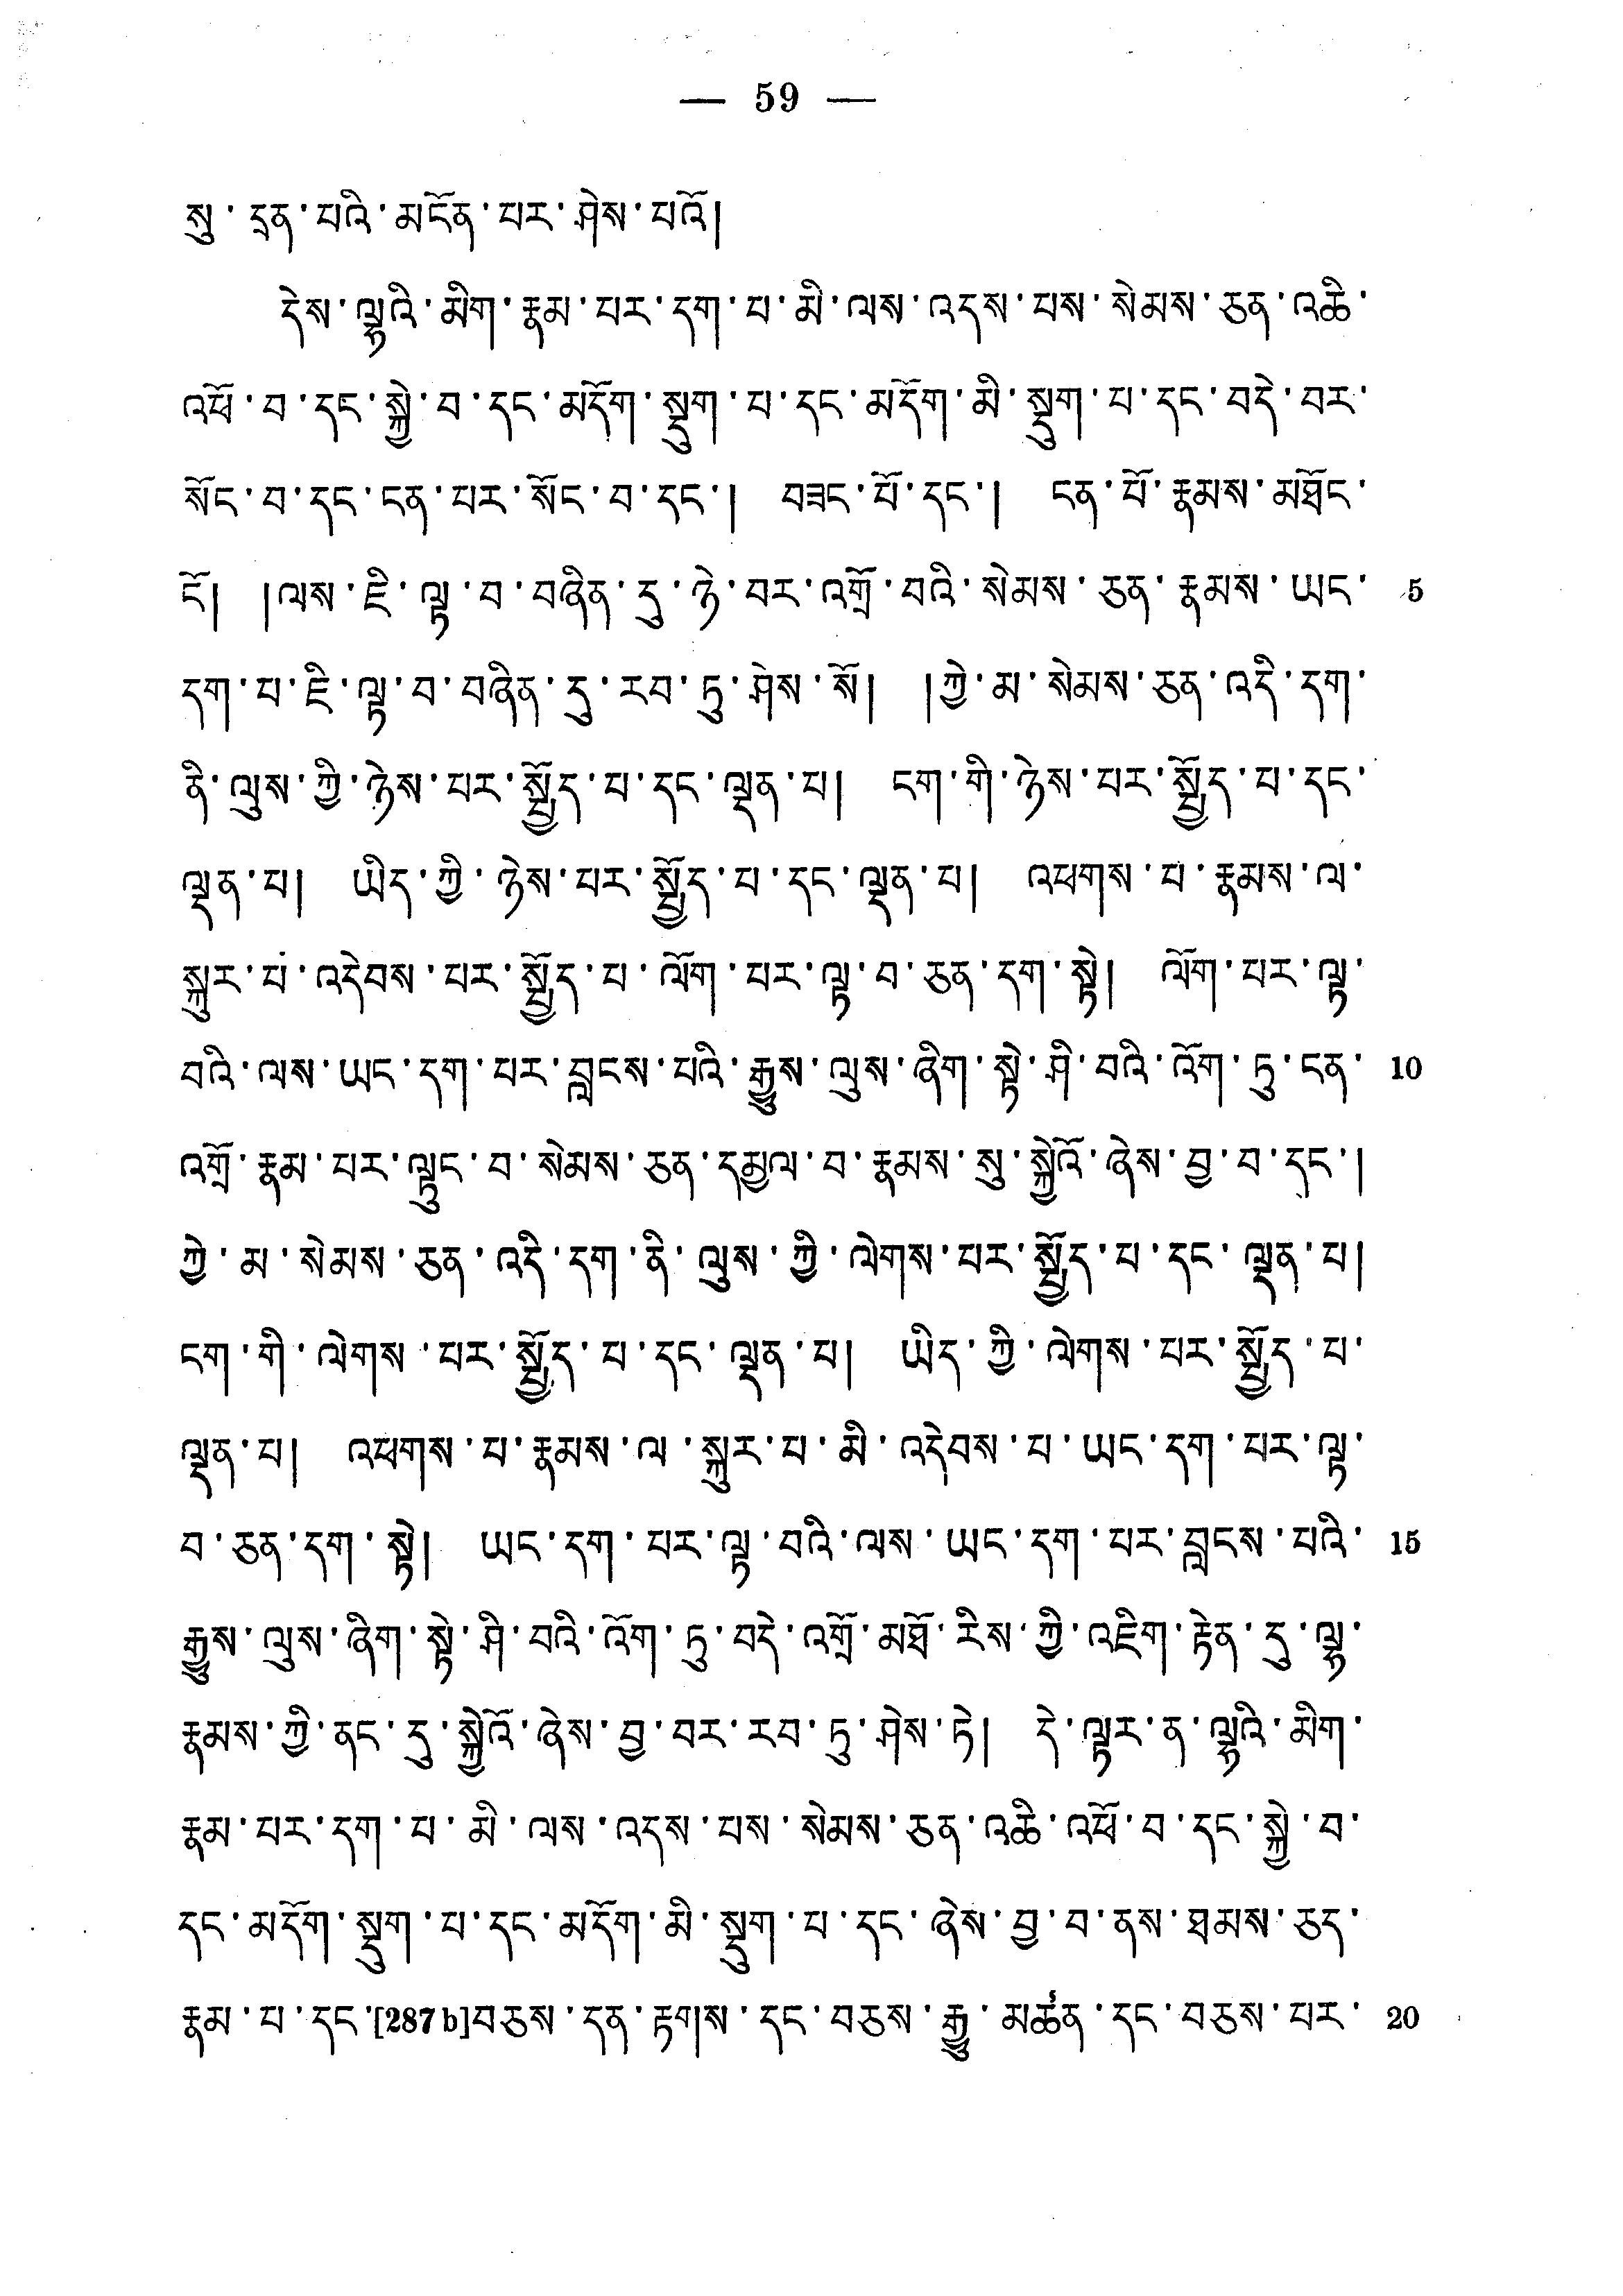 — 59 —
སུ་དྲན་པའི་མངོན་པར་ཤེས་པའོ།
དེས་ལྷའི་མིག་རྣམ་པར་དག་པ་མི་ལས་འདས་པས་སེམས་ཅན་འཆི་
འཕོ་བ་དང་སྐྱེ་བ་དང་མདོག་སྡུག་པ་དང་མདོག་མི་སྡུག་པ་དང་བདེ་བར་
སོང་བ་དང་ངན་པར་སོང་བ་དང་། བཟང་པོ་དང་། ངན་པོ་རྣམས་མཐོང་
ངོ། །ལས་ཇི་ལྟ་བ་བཞིན་དུ་ཉེ་བར་འགྲོ་བའི་སེམས་ཅན་རྣམས་ཡང་ 5
དག་པ་ཇི་ལྟ་བ་བཞིན་དུ་རབ་ཏུ་ཤེས་སོ། །ཀྱེ་མ་སེམས་ཅན་འདི་དག་
ནི་ལུས་ཀྱི་ཉེས་པར་སྤྱོད་པ་དང་ལྡན་པ། ངག་གི་ཉེས་པར་སྤྱོད་པ་དང་
ལྡན་པ། ཡིད་ཀྱི་ཉེས་པར་སྤྱོད་པ་དང་ལྡན་པ། འཕགས་པ་རྣམས་ལ་
སྐུར་པ་འདེབས་པར་སྤྱོད་པ་ལོག་པར་ལྟ་བ་ཅན་དག་སྟེ། ལོག་པར་ལྟ་
བའི་ལས་ཡང་དག་པར་བླངས་པའི་རྒྱུས་ལུས་ཞིག་སྟེ་ཤི་བའི་འོག་ཏུ་ངན་ 10
འགྲོ་རྣམ་པར་ལྟུང་བ་སེམས་ཅན་དམྱལ་བ་རྣམས་སུ་སྐྱེའོ་ཞེས་བྱ་བ་དང་།
ཀྱེ་མ་སེམས་ཅན་འདི་དག་ནི་ལུས་ཀྱི་ལེགས་པར་སྤྱོད་པ་དང་ལྡན་པ།
ངག་གི་ལེགས་པར་སྤྱོད་པ་དང་ལྡན་པ། ཡིད་ཀྱི་ལེགས་པར་སྤྱོད་པ་
ལྡན་པ། འཕགས་པ་རྣམས་ལ་སྐུར་པ་མི་འདེབས་པ་ཡང་དག་པར་ལྟ་
བ་ཅན་དག་སྟེ། ཡང་དག་པར་ལྟ་བའི་ལས་ཡང་དག་པར་བླངས་པའི་ 15
རྒྱུས་ལུས་ཞིག་སྟེ་ཤི་བའི་འོག་ཏུ་བདེ་འགྲོ་མཐོ་རིས་ཀྱི་འཇིག་རྟེན་དུ་ལྷ་
རྣམས་ཀྱི་ནང་དུ་སྐྱེའོ་ཞེས་བྱ་བར་རབ་ཏུ་ཤེས་ཏེ། དེ་ལྟར་ན་ལྷའི་མིག་
རྣམ་པར་དག་པ་མི་ལས་འདས་པས་སེམས་ཅན་འཆི་འཕོ་བ་དང་སྐྱེ་བ་
དང་མདོག་སྡུག་པ་དང་མདོག་མི་སྡུག་པ་དང་ཞེས་བྱ་བ་ནས་ཐམས་ཅད་
རྣམ་པ་དང་[287b]བཅས་དན་རྟགས་དང་བཅས་རྒྱུ་མཚན་དང་བཅས་པར་ 20